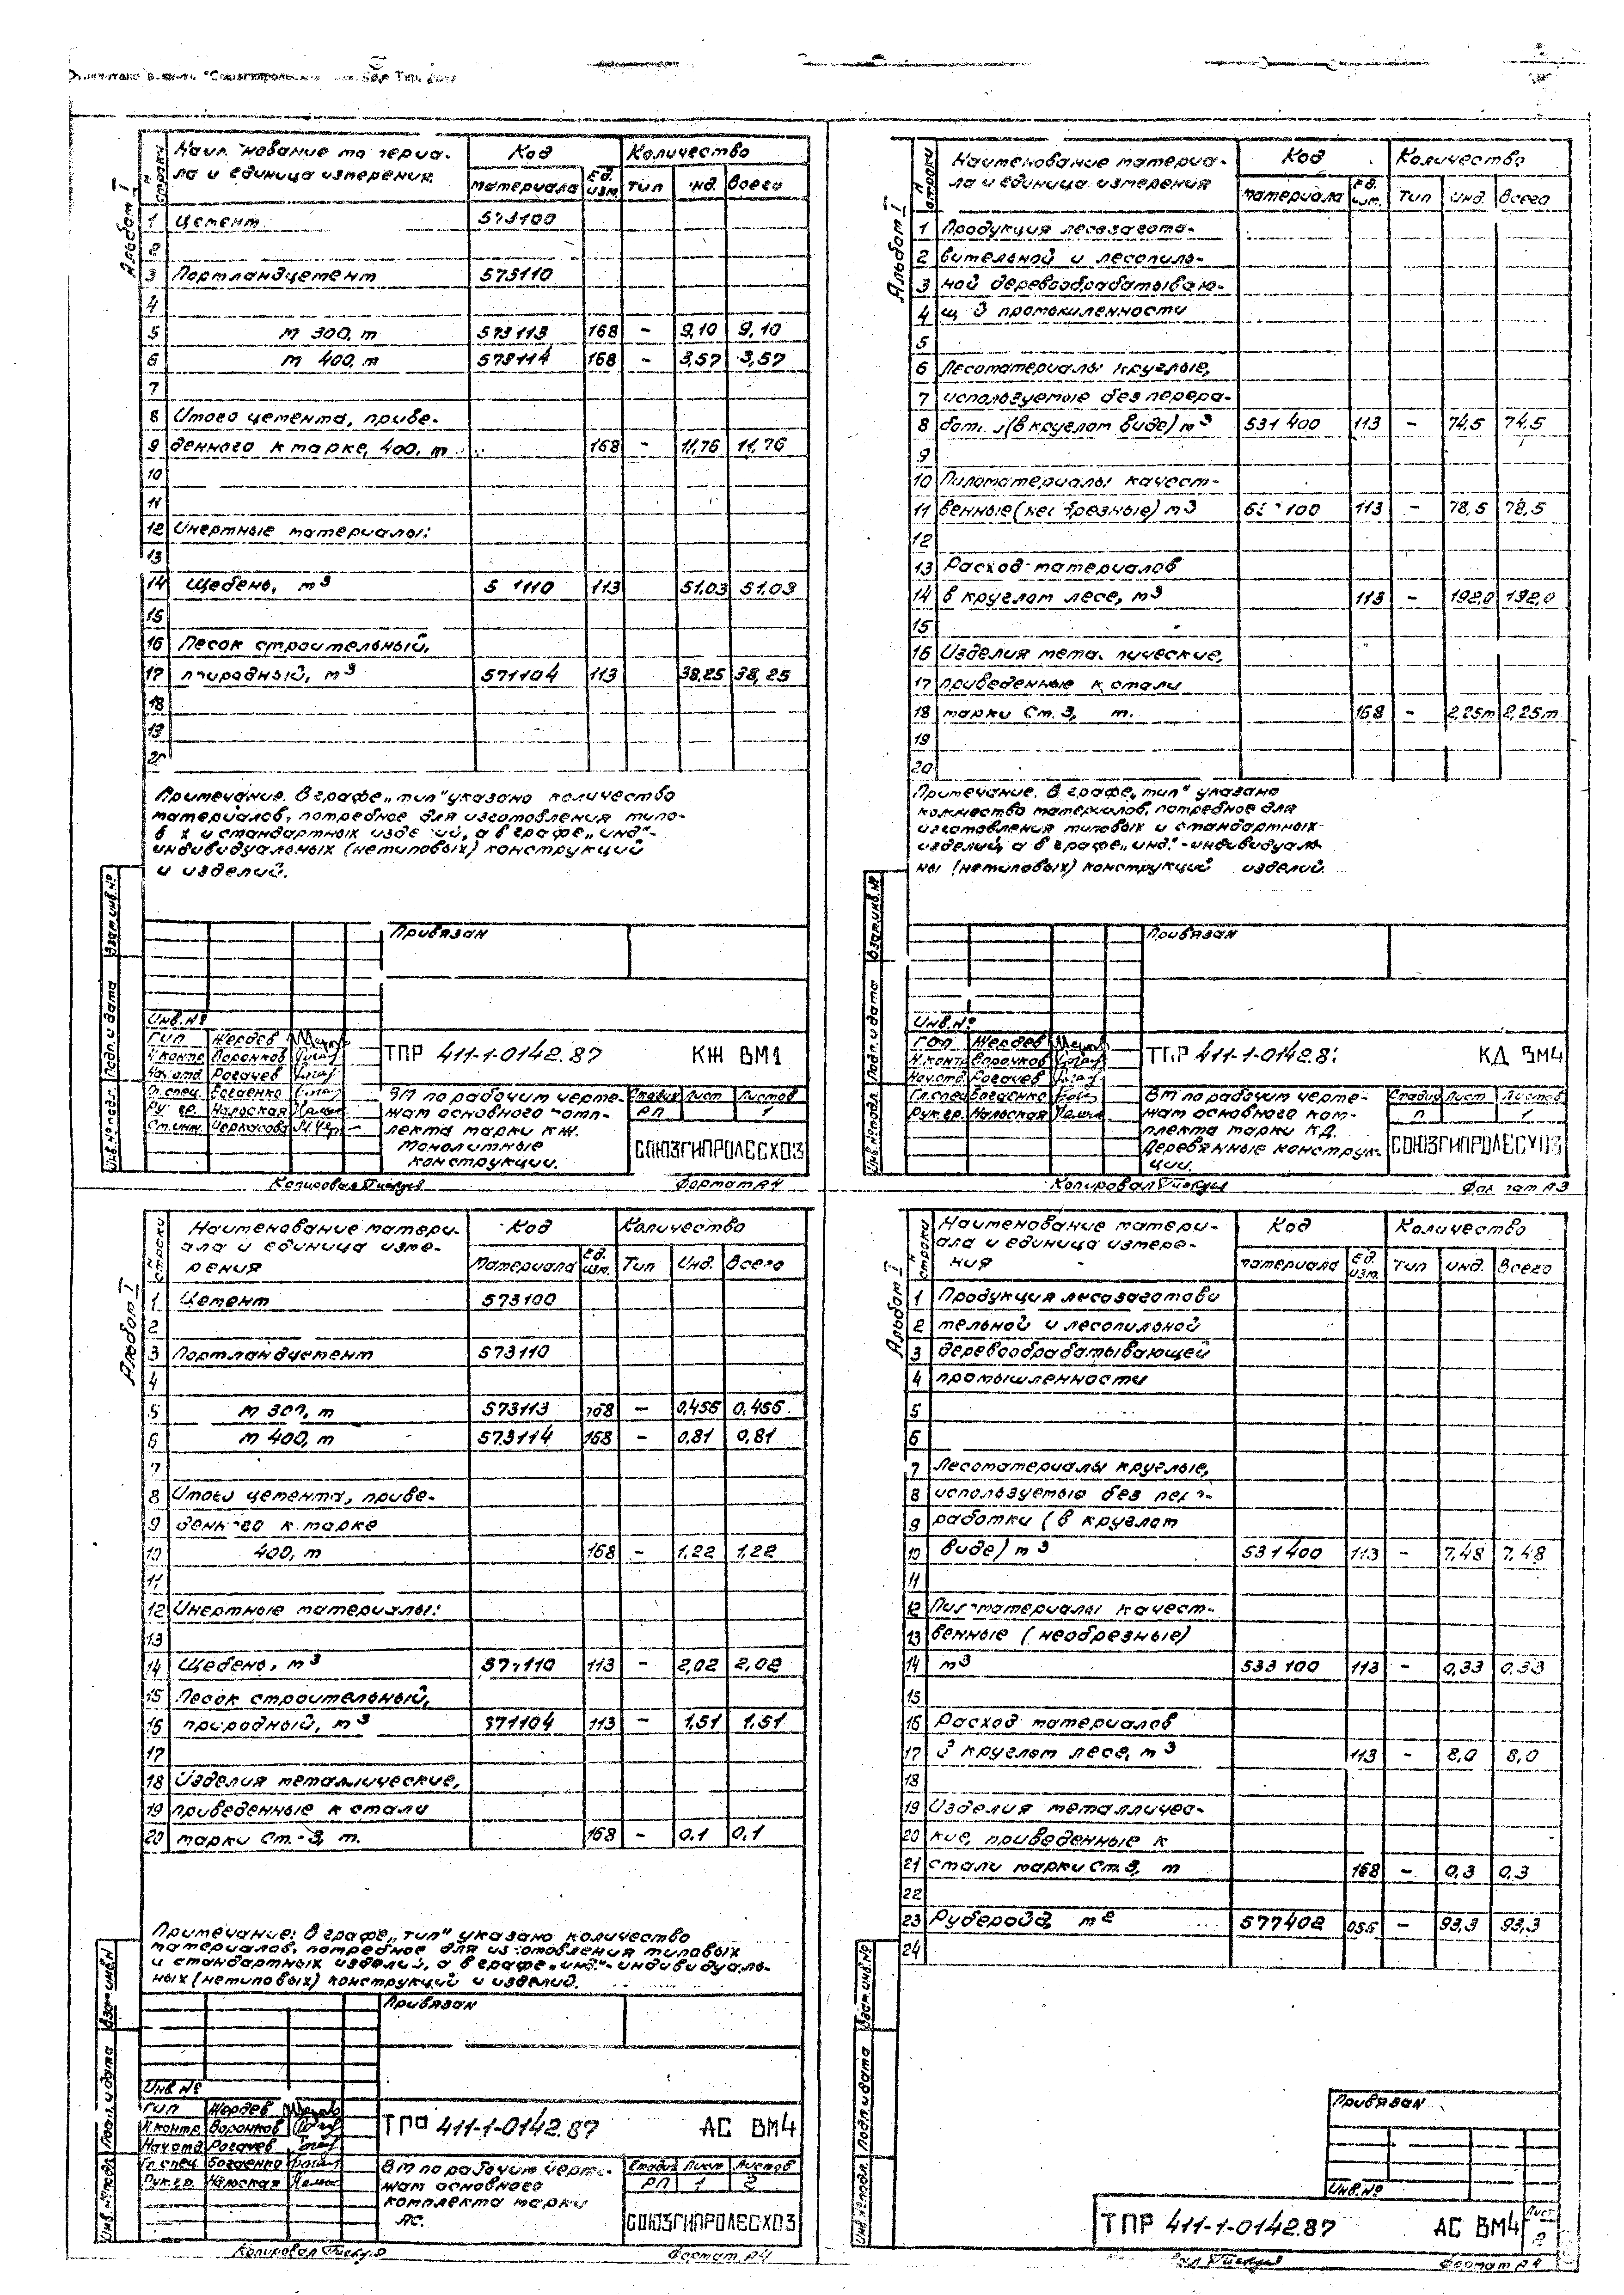 Альбом I
№ строки | Наименование материа-
ла и единица измерения | Код | Количество
материала | Ед. изм. | тип | инд. | Всего
1 Цемент 573100
2
3 Портландцемент 573110
4
5 м 300, т 573113 168 - 9,10 9,10
6 м 400, т 573114 168 - 3,57 3,57
7
8 Итого цемента, приве-
9 денного к марке, 400, т 168 - 11,76 11,76
10
11
12 Инертные материалы:
13
14 Щебень, м3 113 51,03 51,03
15
16 Песок строительный,
17 природный, м3 571104 113 38,25 38,25
18
19
20
Примечание. В графе „тип" указано количество
материалов, потребное для изготовления типо-
и стандартных а в графе „инд"-
индивидуальных (нетиповых) конструкций
и изделий.
Взам.инв.№
Подп. и дата
Инв.№ подл.
Привязан
Инв.№
Гип Жердев
Н.контр Воронков
Нач.отд. Рогачев
Гл.спец. Богаенко
Рук.гр. Нальская
Ст.инж. Черкасова
ТПР 411-1-0142.87 КЖ ВМ1
ВМ по рабочим черте-
жам основного комп-
лекта марки КЖ.
Монолитные
конструкции.
Стадия Лист Листов
РП 1
СОЮЗГИПРОЛЕСХОЗ
Копировал Формат А4
Альбом I
№ строки | Наименование материа-
ла и единица измерения | Код | Количество
материала | Ед. изм. | тип | инд. | Всего
1 Продукция лесозагото-
2 вительной и лесопиль-
3 ной деревообрабатываю-
4 промышленности
5
6 Лесоматериалы круглые,
7 используемые без перера-
8 (в круглом виде) м3 531400 113 - 74,5 74,5
9
10 Пиломатериалы качест-
11 венные (необрезные) м3 113 - 78,5 78,5
12
13 Расход материалов
14 в круглом лесе, м3 113 - 192,0 192,0
15
16 Изделия металлические,
17 приведенные к стали
18 марки Ст. 3, т. 168 - 2,25т 2,25т
19
20
Примечание. В графе „тип" указано
количество материалов, потребное для
изготовления типовых и стандартных
изделий, а в графе „инд."-индивидуаль-
ны (нетиповых) конструкций изделий.
Взам.инв.№
Подп. и дата
Инв.№ подл.
Привязан
Инв.№
Гип Жердев
Н.контр Воронков
Нач.отд. Рогачев
Гл.спец Богаенко
Рук.гр. Нальская
ТПР 411-1-0142.87 КД ВМ4
ВМ по рабочим черте-
жам основного ком-
плекта марки КД.
Деревянные конструк-
ции.
Стадия Лист Листов
П 1
СОЮЗГИПРОЛЕСХОЗ
Копировал Формат А3
Альбом I
№ строки | Наименование матери-
ала и единица изме-
рения | Код | Количество
материала | Ед. изм. | Тип | Инд. | Всего
1 Цемент 573100
2
3 Портландцемент 573110
4
5 м 300, т 573113 168 - 0,455 0,455
6 м 400, т 573114 168 - 0,81 0,81
7
8 Итого цемента, приве-
9 денного к марке
10 400, т 168 - 1,22 1,22
11
12 Инертные материалы:
13
14 Щебень, м3 571110 113 - 2,02 2,02
15 Песок строительный,
16 природный, м3 571104 113 - 1,51 1,51
17
18 Изделия металлические,
19 приведенные к стали
20 марки Ст.-3, т. 168 - 0,1 0,1
Примечание: В графе „тип" указано количество
материалов, потребное для изготовления типовых
и стандартных изделий, а в графе „инд."- индивидуаль-
ных (нетиповых) конструкций и изделий.
Взам инв.№
Подп. и дата
Инв.№ подл.
Привязан
Инв №
Гип Жердев
Н.контр Воронков
Нач.отд Рогачев
Гл.спец Богаенко
Рук.гр. Нальская
ТПР 411-1-0142.87 АС ВМ4
ВМ по рабочим черте-
жам основного
комплекта марки
АС.
Стадия Лист Листов
РП 1 2
СОЮЗГИПРОЛЕСХОЗ
Копировал Формат А4
Альбом I
№ строки | Наименование матери-
ала и единица измере-
ния | Код | Количество
материала | Ед. изм. | Тип | инд. | Всего
1 Продукция лесозаготови
2 тельной и лесопильной
3 деревообрабатывающей
4 промышленности
5
6
7 Лесоматериалы круглые,
8 используемые без пере-
9 работки (в круглом
10 виде) м3 531400 113 - 7,48 7,48
11
12 Пиломатериалы качест-
13 венные (необрезные)
14 м3 533100 113 - 0,33 0,33
15
16 Расход материалов
17 в круглом лесе, м3 113 - 8,0 8,0
18
19 Изделия металличес-
20 кие, приведенные к
21 стали марки Ст 3, т 168 - 0,3 0,3
22
23 Рубероид, м2 577402 055 - 93,3 93,3
24
Взам.инв.№
Подп. и дата
Инв.№ подл.
Привязан
Инв.№
ТПР 411-1-0142.87 АС ВМ4
Лист
2
Формат А4